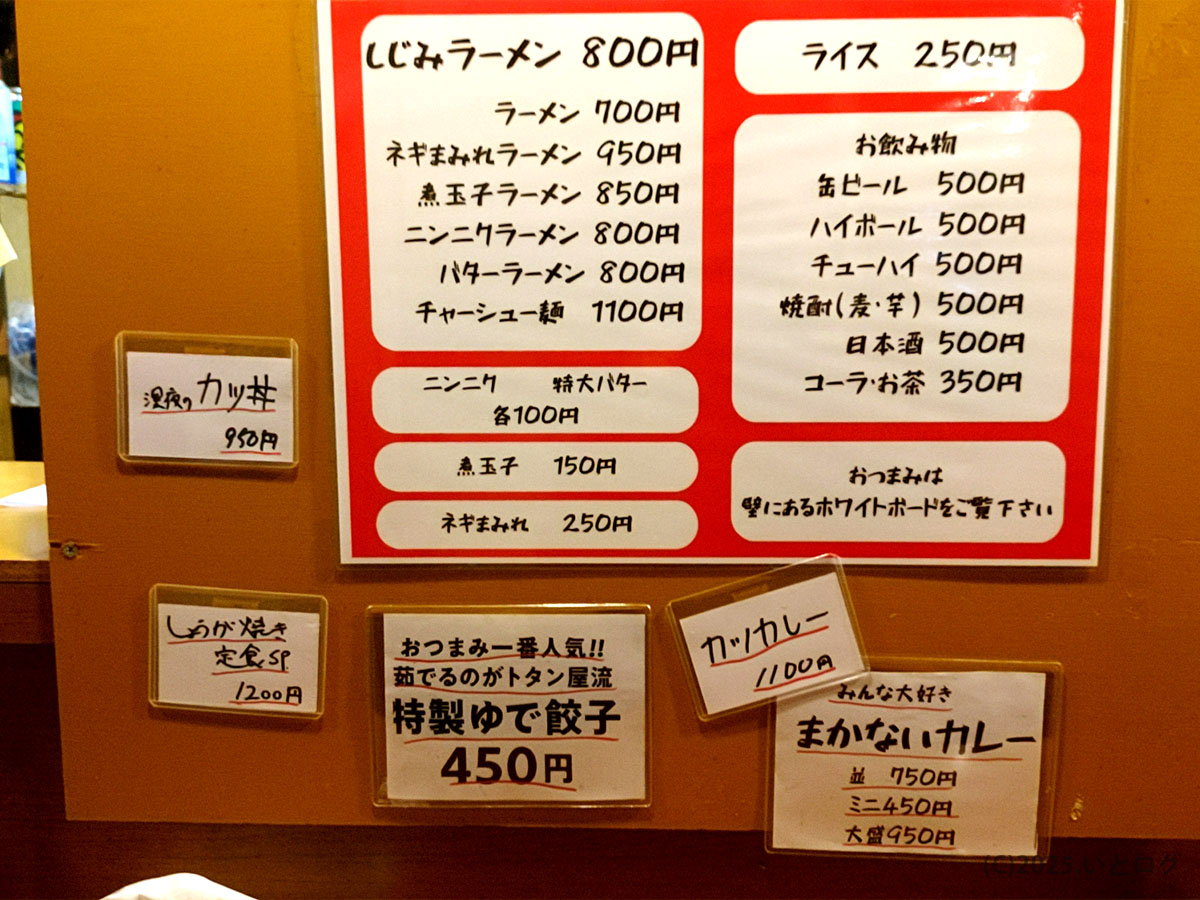 しじみラーメン 800円
ラーメン 700円
ネギまみれラーメン 950円
煮玉子ラーメン 850円
ニンニクラーメン 800円
バターラーメン 800円
チャーシュー麺 1100円
ニンニク 特大バター
各100円
煮玉子 150円
ネギまみれ 250円
ライス 250円
お飲み物
缶ビール 500円
ハイボール 500円
チューハイ 500円
焼酎(麦・芋) 500円
日本酒 500円
コーラ・お茶 350円
おつまみは
壁にあるホワイトボードをご覧下さい
深夜のカツ丼
950円
しょうが焼き
定食SP
1200円
おつまみ一番人気!!
茹でるのがトタン屋流
特製ゆで餃子
450円
カツカレー
1100円
みんな大好き
まかないカレー
並 750円
ミニ450円
大盛950円
(C)2025 いとログ